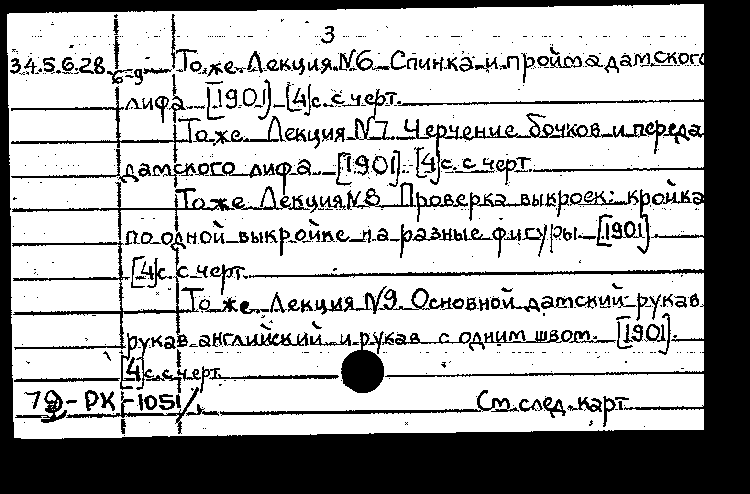 3
34.5.6.28 То же. Лекция N6. Спинка и пройма дамского
6-9 лифа [1901]. [4]с. с черт.
То же. Лекция N7. Черчение бочков и переда
дамского лифа [1901]. [4]с. с черт
То же Лекция N8. Проверка выкроек: кройка
по одной выкройке на разные фигуры. [1901].
[4]с. с черт.
То же. Лекция N9. Основной дамский рукав
рукав английский и рукав с одним швом. [1901].
[4]с. с черт.
79-РК-1051 См. след. карт